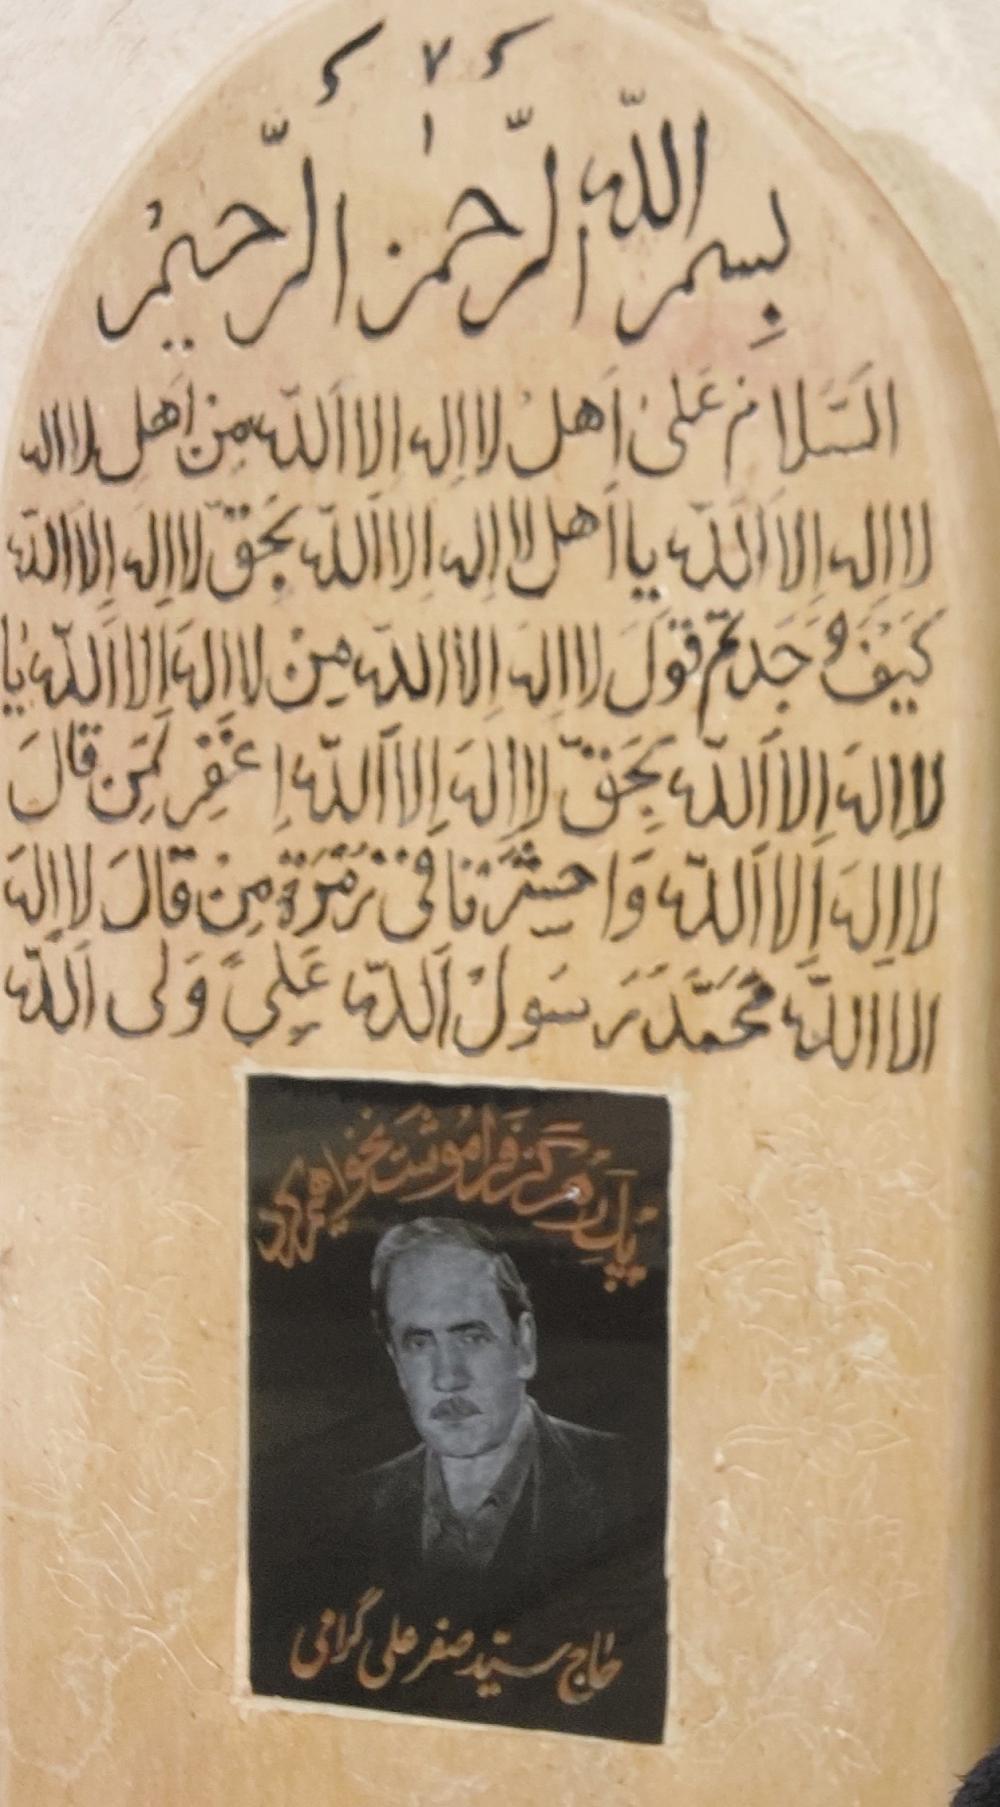 بسم الله الرحمن الرحیم
السَّلامُ عَلی اَهلِ لا اِلهَ اِلا اَللّه مِن اَهلِ لا اله
لا اله اِلا اَللّه یا اَهل لا اِله اِلا اَللّه بِحَقّ لا اِله اِلا الله
کَیفَ وَجَدتم قَولَ لا اله اِلا اللّه مِنْ لا اله اَلا اَللّه یا
لا اِلهَ اِلا اَللّه بِحَقّ لا اِلهَ اِلا اَللّه اِغفِر لِمَن قالَ
لا اِلهَ اِلا اَللّه وَا حشُرنا فی زُمرَة مِنْ قالَ لا اِلهَ
الا اللَّه مُحَمَّد رَسَولُ اَللّه عَلِیً وَلی اَللّه
پدر هرگز فراموشت نخواهیم کرد
حاج سید صفر علی گرامی